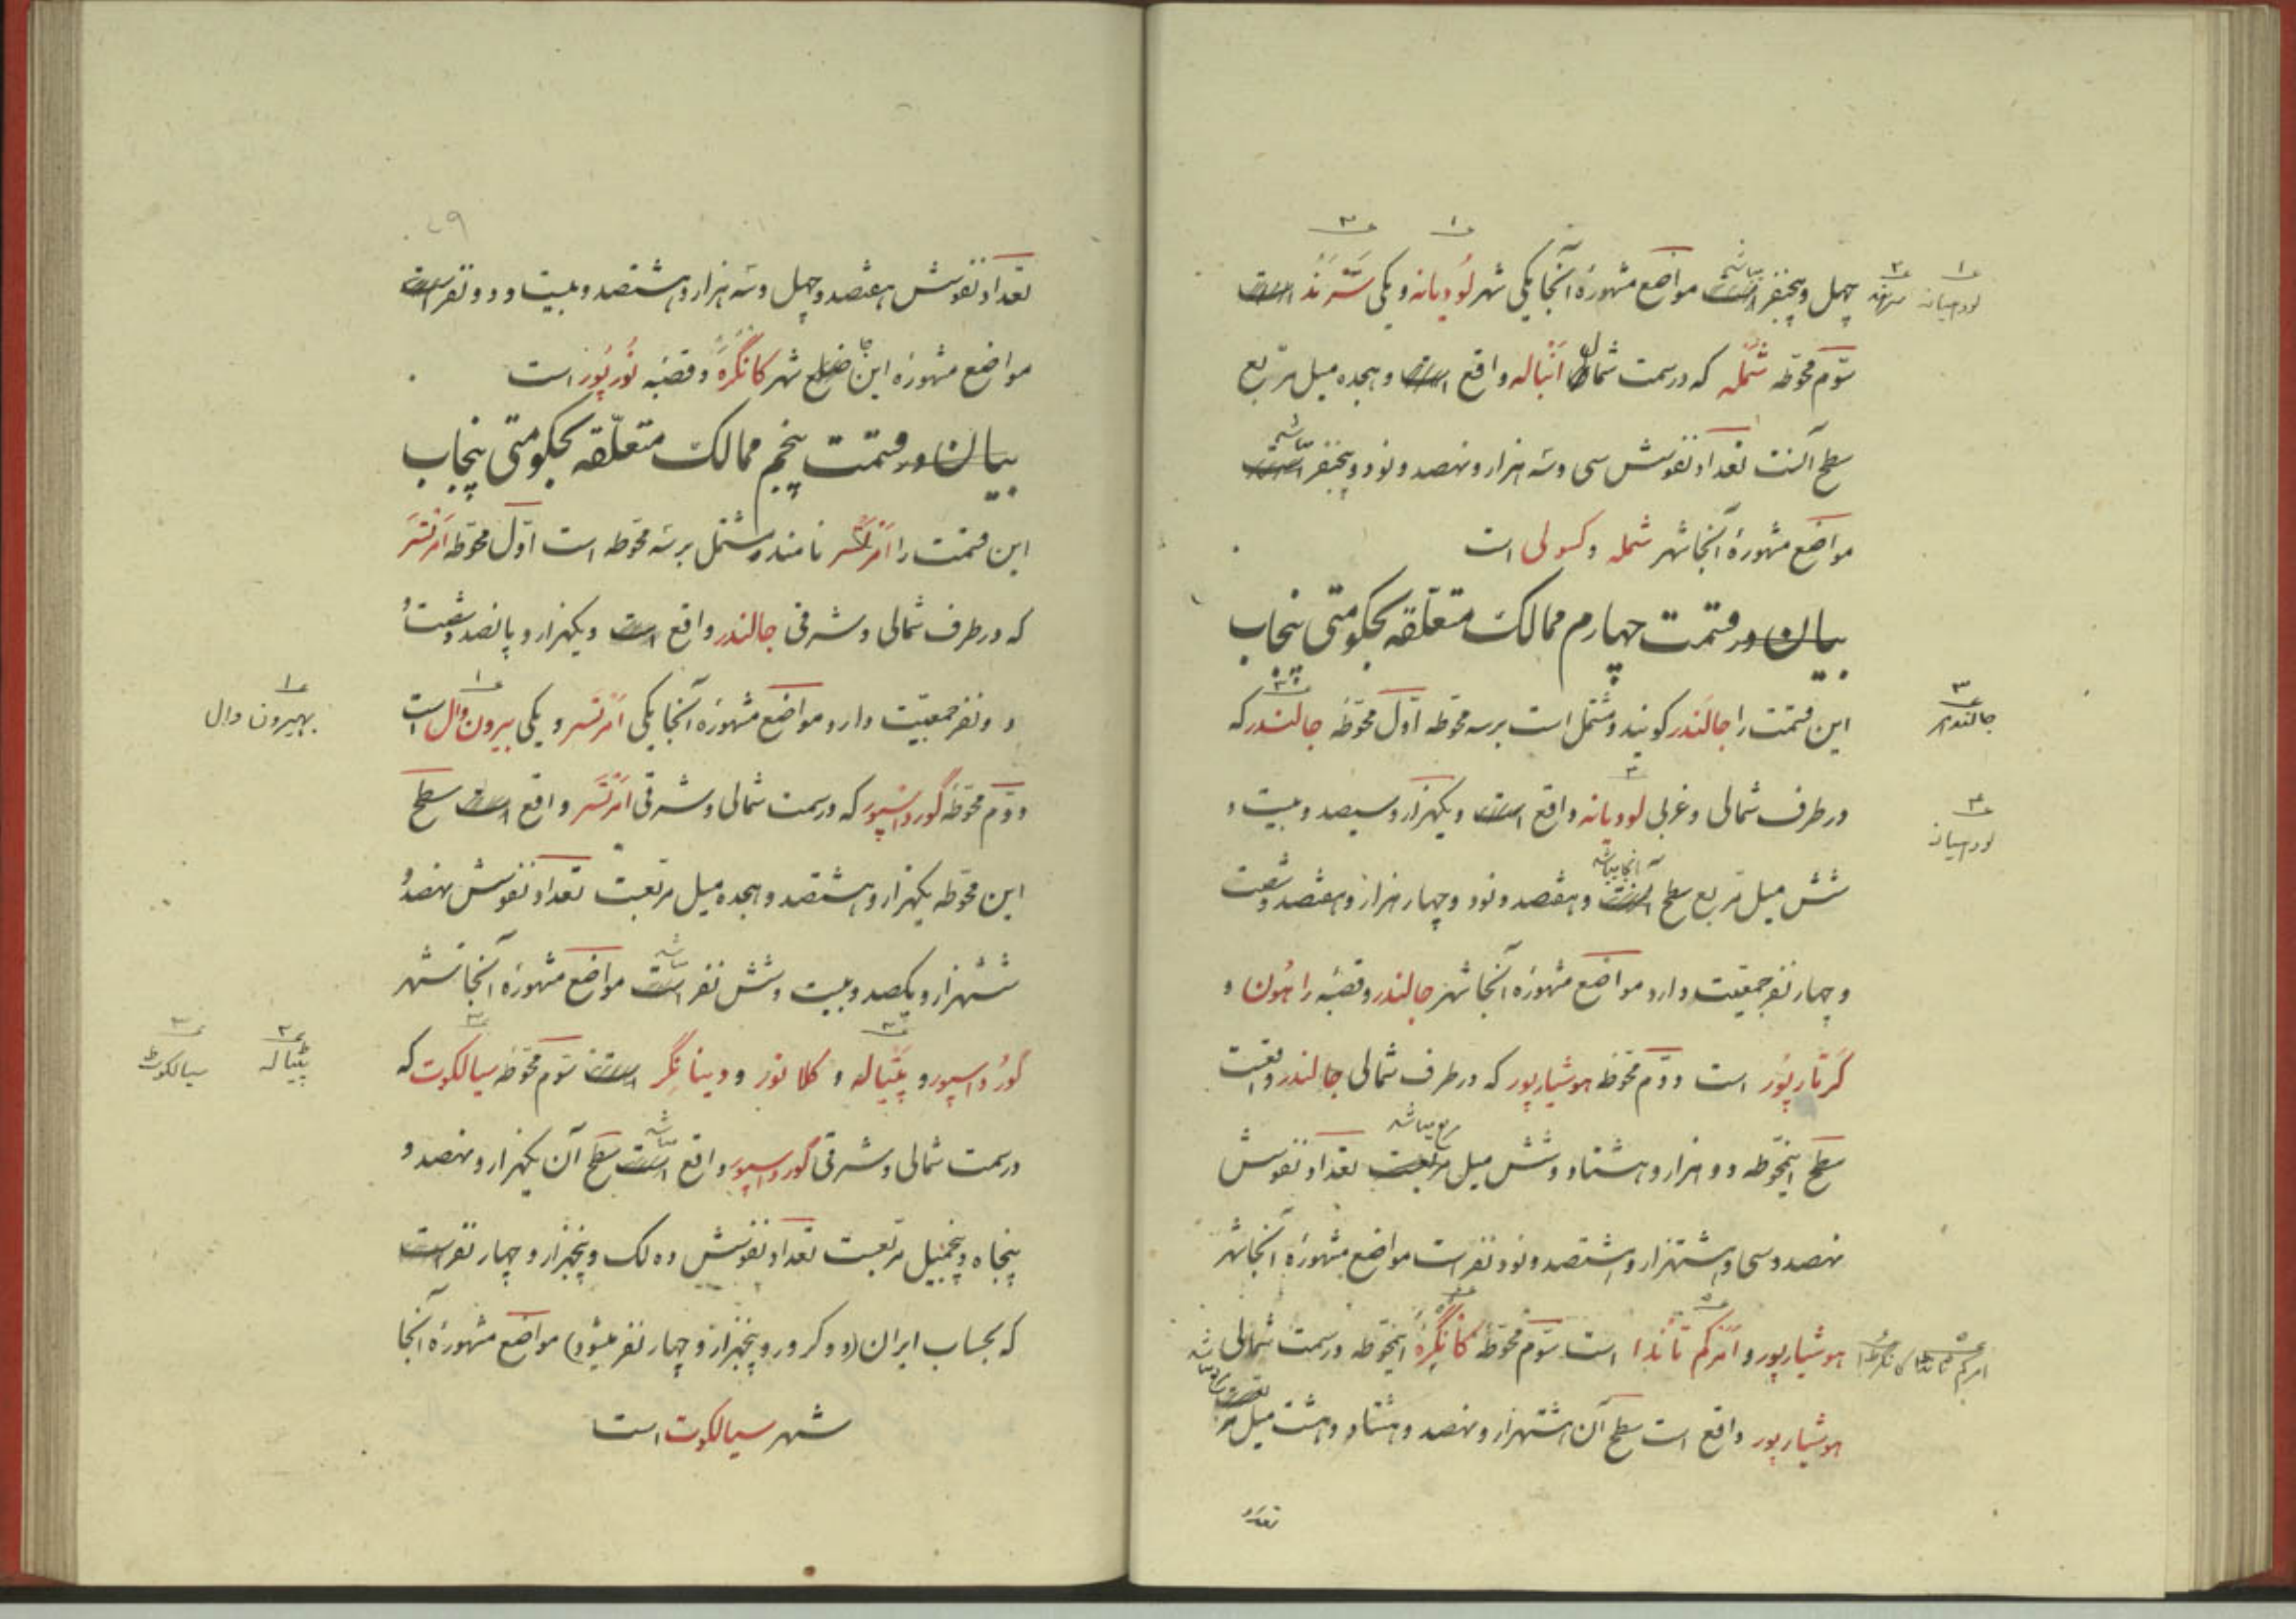 چهل و پنجنفر است میباشد مواضع مشهورۀ آنجا یکی شهر لُودیانه و یکی سَتْرَنْد است
لودهیانه
سرهند
سوّم محوّطه شَمْله که در سمت شمال اَنْباله واقع است و هجده میل مربّع
سطح آنست تعداد نفوسش سی و سه هزار و نهصد و نود و پنجنفر است میباشد
مواضع مشهورۀ آنجا شهر شمله و کسولی است
بیان در قسمت چهارم ممالک متعلّقه بحکومتی پنجاب
این قسمت را جالَنْدر گویند و مشتمل است بر سه محوّطه اوّل محوّطۀ جالندر که
جالندهر
در طرف شمالی و غربی لودیانه واقع است و یکهزار و سیصد و بیست و
لودهیانه
شش میل مربع سطح آنست آنجا میباشد و هفتصد و نود و چهار هزار و هفتصد و شصت
و چهار نفر جمعیّت دارد مواضع مشهورۀ آنجا شهر جالندر و قصبۀ راهُون و
کَرتارپُور است دوّم محوّطۀ هوشیارپور که در طرف شمالی جالندر واقعست
سطح اینمحوّطه دو هزار و هشتاد و شش میل مربعست مربع میباشد تعداد نفوسش
نهصد و سی و هشتهزار و هشتصد و نود نفر است مواضع مشهورۀ آنجا شهر
هوشیارپور و اَمَرکم تانْدا است سوّم محوّطۀ کانْگَرَه اینمحوّطه در سمت شمالی
امرکم تانڈا
کانگرطا
هوشیارپور واقع است سطح آن هشتهزار و نهصد و هشتاد و هشت میل مربعست مربع میباشد
تعداد
۷۹
تعداد نفوسش هفتصد و چهل و سه هزار و هشتصد و بیست و دو نفر است
مواضع مشهورۀ این ضلع شهر کانْگَرَه و قصبۀ نُورپُور است
بیان در قسمت پنجم ممالک متعلّقه بحکومتی پنجاب
این قسمت را اَمْرتسَر نامند و مشتمل بر سه محوّطه است اوّل محوّطه اَمْرتْسَر
که در طرف شمالی و شرقی جالندر واقع است و یکهزار و پانصد و شصت و
دو نفر جمعیّت دارد مواضع مشهورۀ آنجا یکی اَمْرتسر و یکی بیرون وال است
بهیرون وال
دوّم محوّطۀ گورداسپور که در سمت شمالی و شرقی اَمْرتْسَر واقع است سطح
این محوّطه یکهزار و هشتصد و هجده میل مربّعست تعداد نفوسش نهصد و
ششهزار و یکصد و بیست و شش نفر است میباشد مواضع مشهورۀ آنجا شهر
گورداسپور و پَتیاله و کلانور و دینانگر است سوّم محوّطۀ سیالکوت که
پٹیاله
سیالکوٹ
در سمت شمالی و شرقی گورداسپور واقع است میباشد سطح آن یکهزار و نهصد و
پنجاه و پنجمیل مربّعست تعداد نفوسش ده لک و پنجهزار و چهار نفر است
که بحساب ایران (دو کرور و پنجهزار و چهار نفر میشود) مواضع مشهورۀ آنجا
شهر سیالکوت است